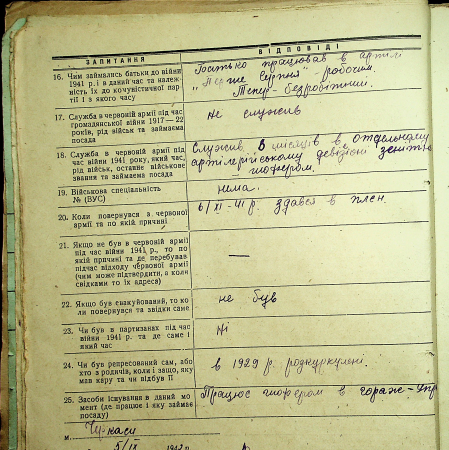 ЗАПИТАННЯ
ВІДПОВІДІ
16. Чим займались батьки до війни
1941 р. і в даний час та належ-
ність їх до комуністичної пар-
тії і з якого часу
Батько працював в артілі
„Перше серпня" - робочим.
Тепер - безробітний.
17. Служба в червоній армії під час
громадянської війни 1917—22
років, рід військ та займаєма
посада
Не служив
18. Служба в червоній армії під
час війни 1941 року, який час,
рід військ, останнє військове
звання та займаєма посада
Служив 8 місяців в отдельному
артілерійському девізіоні
шофером.
19. Військова спеціальність
№ (ВУС)
нема.
20. Коли повернувся з червоної
армії та по якій причині
6/XI-41 р. здався в плен.
21. Якщо не був в червоній армії
під час війни 1941 р., то по
якій причині та де перебував
підчас відходу червоної армії
(чим може підтвердити, а коли
свідками то їх адреса)
—
22. Якщо був евакуйований, то ко-
ли повернувся та звідки саме
не був
23. Чи був в партизанах під час
війни 1941 р. та де саме і
який час
Ні
24. Чи був репресований сам, або
хто з родичів, коли і защо, яку
мав кару та чи відбув її
в 1929 р. розкуркулені.
25. Засоби існування в даний мо-
мент (де працює і яку займає
посаду)
Працює шофером в гараж-Упр
м.
5/IX